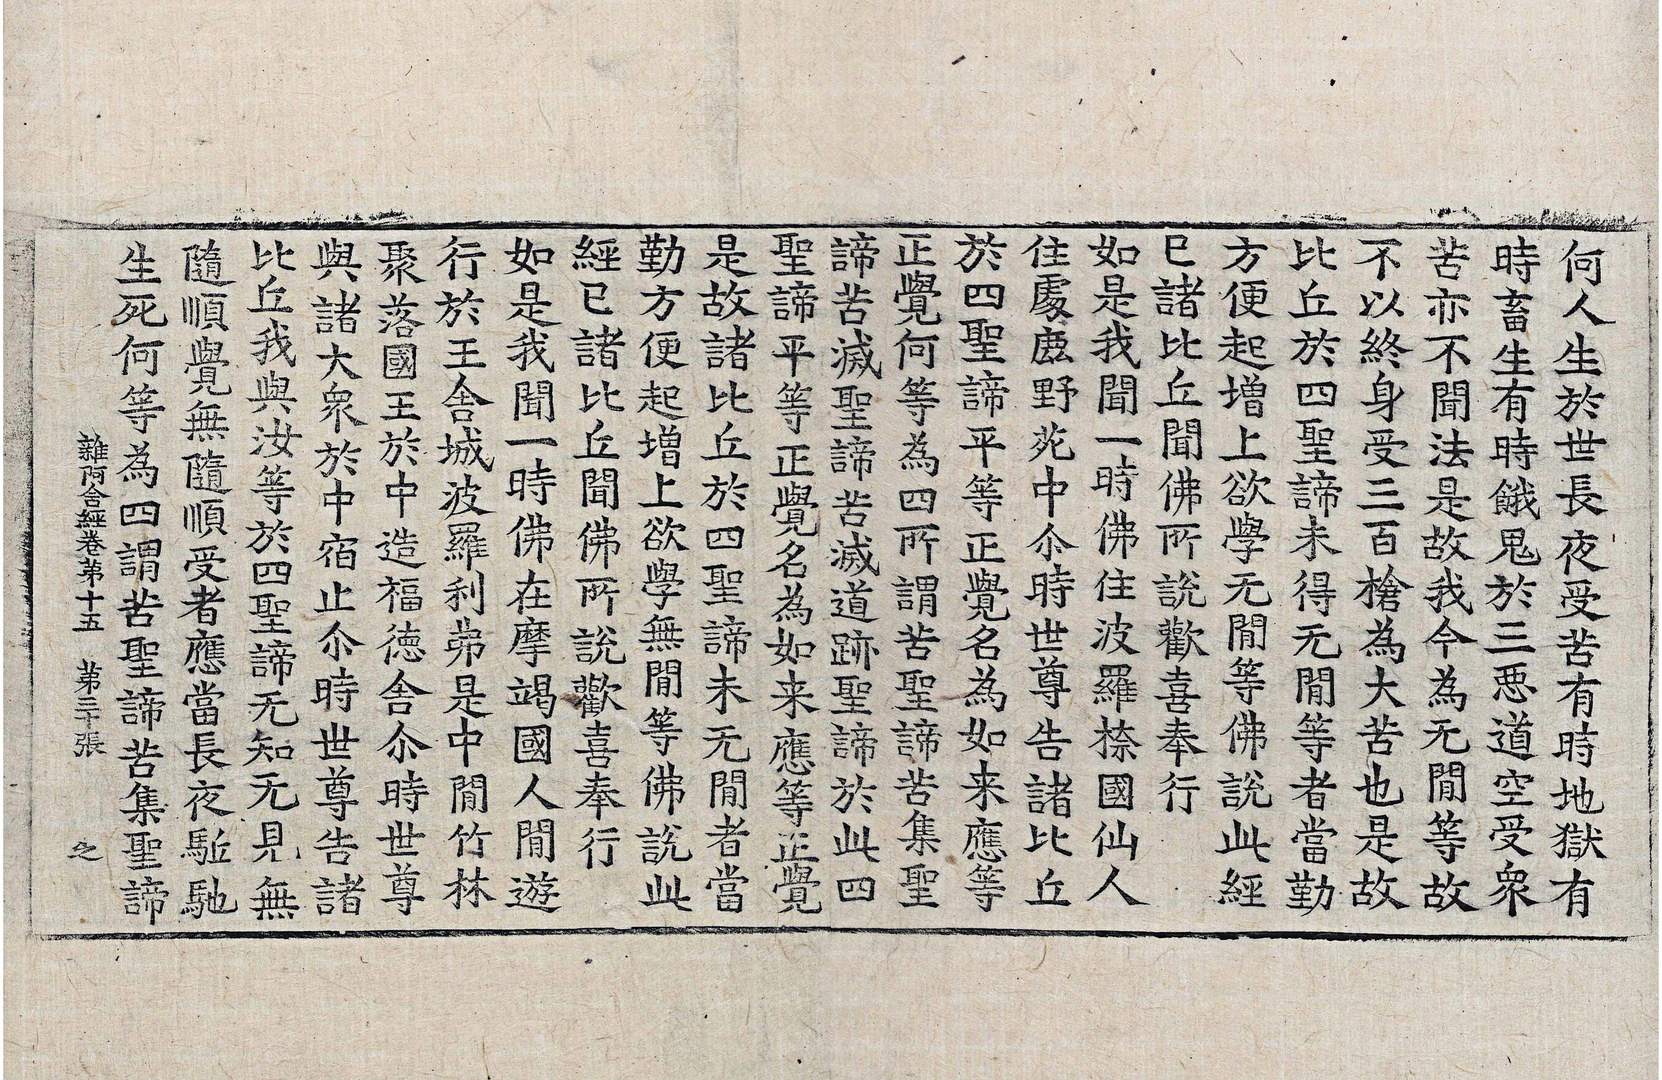 何人生於世長夜受苦有時地獄有
時畜生有時餓鬼於三悪道空受衆
苦亦不聞法是故我今為无閒等故
不以終身受三百槍為大苦也是故
比丘於四聖諦未得无閒等者當勤
方便起增上欲學无閒等佛說此經
已諸比丘聞佛所說歡喜奉行
如是我聞一時佛住波羅㮈國仙人
住處鹿野苑中尒時世尊告諸比丘
於四聖諦平等正覺名為如来應等
正覺何等為四所謂苦聖諦苦集聖
諦苦滅聖諦苦滅道跡聖諦於此四
聖諦平等正覺名為如来應等正覺
是故諸比丘於四聖諦未无閒者當
勤方便起增上欲學無閒等佛說此
經已諸比丘聞佛所說歡喜奉行
如是我聞一時佛在摩竭國人閒遊
行於王舍城波羅利弗是中閒竹林
聚落國王於中造福德舍尒時世尊
與諸大衆於中宿止尒時世尊告諸
比丘我與汝等於四聖諦无知无見無
隨順覺無隨順受者應當長夜駈馳
生死何等為四謂苦聖諦苦集聖諦
雜阿含經卷苐十五 苐三十張 之